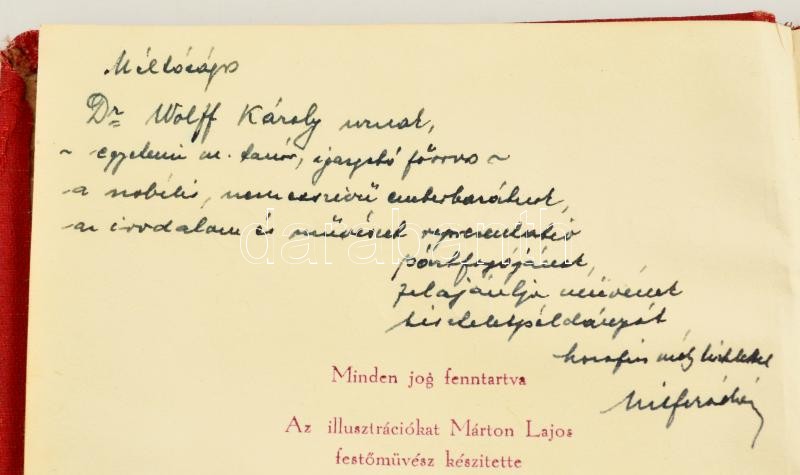 Méltóságos
Dr Wolff Károly urnak,
~ egyetemi m. tanár, igazgató főorvos ~
-a nobilis, nemesszivű emberbarátnak,
-az irodalom és művészet reprezentatió
pártfogójának,
felajánlja művének
tiszteletpéldányát
honfiui mély tisztelettel
Minden jog fenntartva
Az illusztrációkat Márton Lajos
festőművész készitette
darabanth